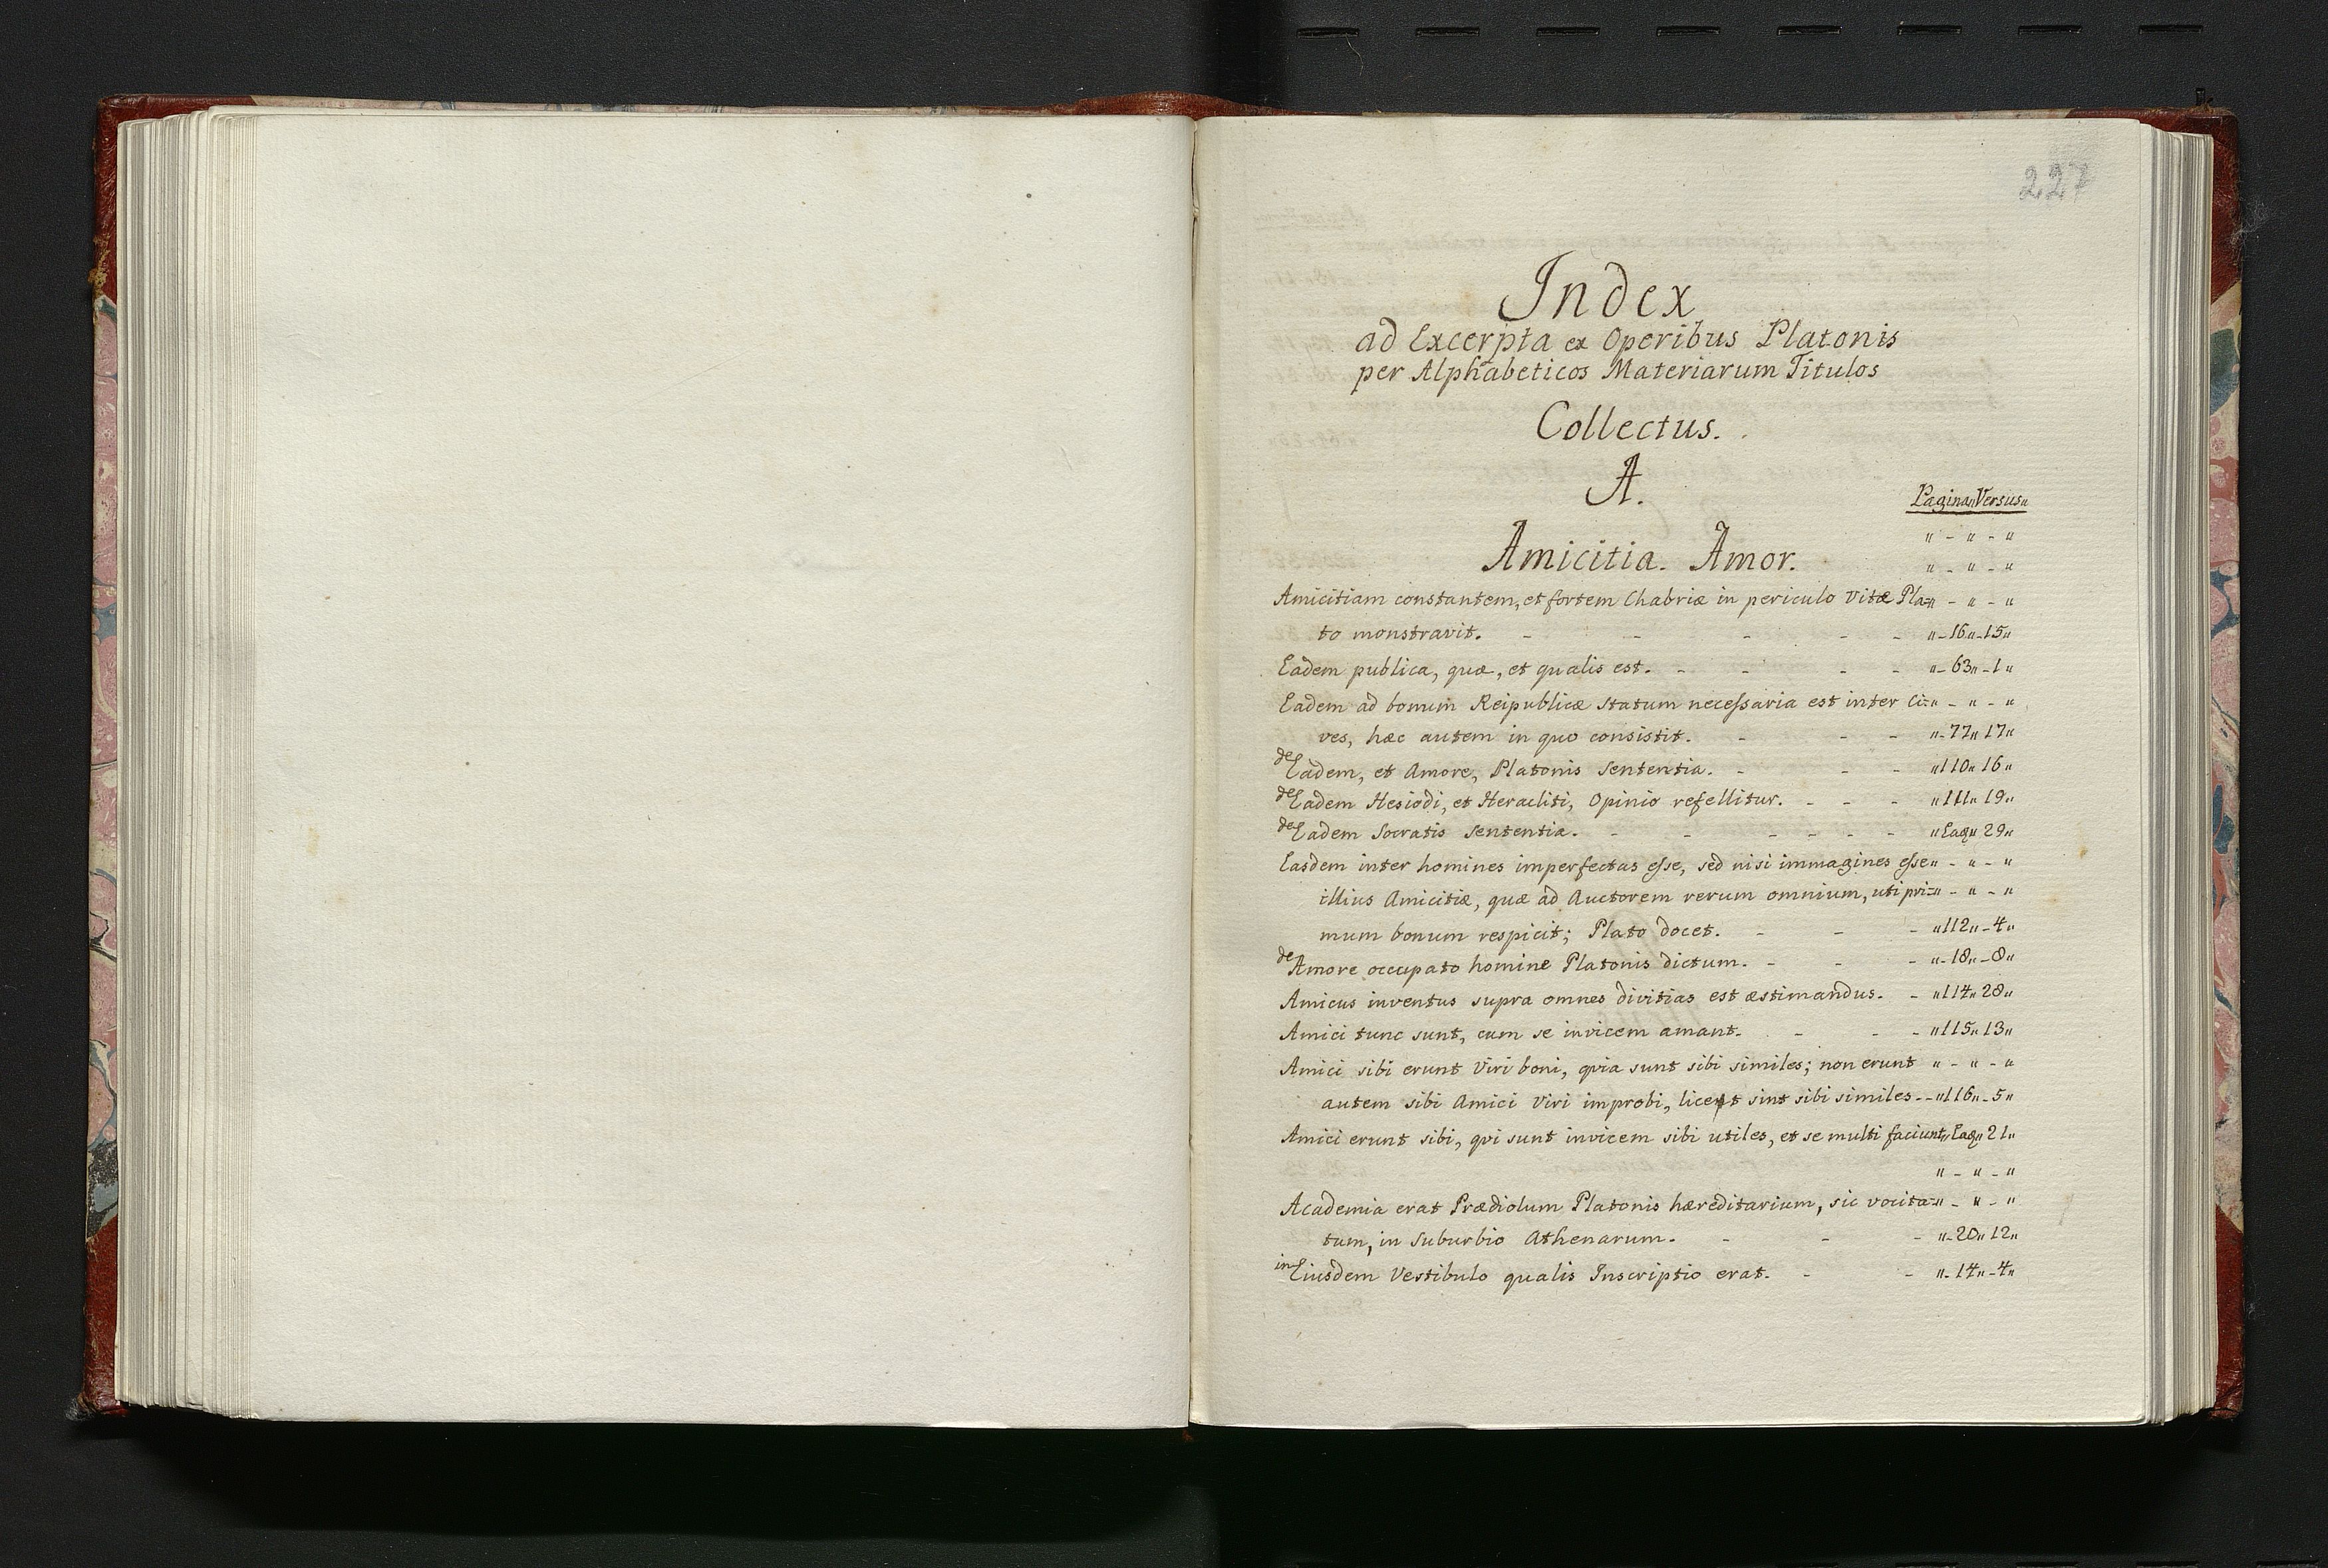 227
Index
ad Excerpta ex Operibus Platonis
per Alphabeticos Materiarum Titulos
Collectus.
A.
Pagina〃Versus〃
〃 - 〃 - 〃
Amicitia. Amor. 〃 - 〃 - 〃
Amicitiam constantem, et fortem Chabriæ in periculo Vitæ Pla=〃 - 〃 - 〃
to monstravit. - - - - - 〃-16〃-15〃
Eadem publica, quæ, et qualis est. - - - - 〃-63〃-1〃
Eadem ad bonum Reipublicæ statum necessaria est inter Ci=〃 - 〃 - 〃
ves, hæc autem in quo consistit. - - - 〃-77〃17〃
de Eadem, et Amore, Platonis Sententia. - - - 〃110〃16〃
de Eadem Hesiodi, et Heracliti, Opinio refellitur. - - - 〃111〃19〃
de Eadem Socratis Sententia. - - - - - - 〃Eaq〃29〃
Easdem inter homines imperfectas esse, sed nisi immagines esse〃 - 〃 - 〃
illius Amicitiæ, quæ ad Auctorem rerum omnium, uti pri=〃 - 〃 - 〃
mum bonum respicit; Plato docet. - - - 〃112〃-4〃
de Amore occupato homine Platonis dictum. - - - 〃-18〃-8〃
Amicus inventus supra omnes divitias est æstimandus. - 〃114〃28〃
Amici tunc sunt, cum se invicem amant. - - - 〃115〃13〃
Amici sibi erunt Viri boni, qvia sunt sibi similes; non erunt 〃 - 〃 - 〃
autem sibi Amici Viri improbi, licet sint sibi similes.--〃116〃-5〃
Amici erunt sibi, qvi sunt invicem sibi utiles, et se multi faciunt〃Eaq〃21〃
〃 - 〃 - 〃
Academia erat Prædiolum Platonis hæreditarium, sic vocita=〃 - 〃 - 〃
tum, in suburbio Athenarum. - - - 〃-20〃12〃
in Eiusdem Vestibulo qualis Inscriptio erat. - - 〃-14〃-4〃